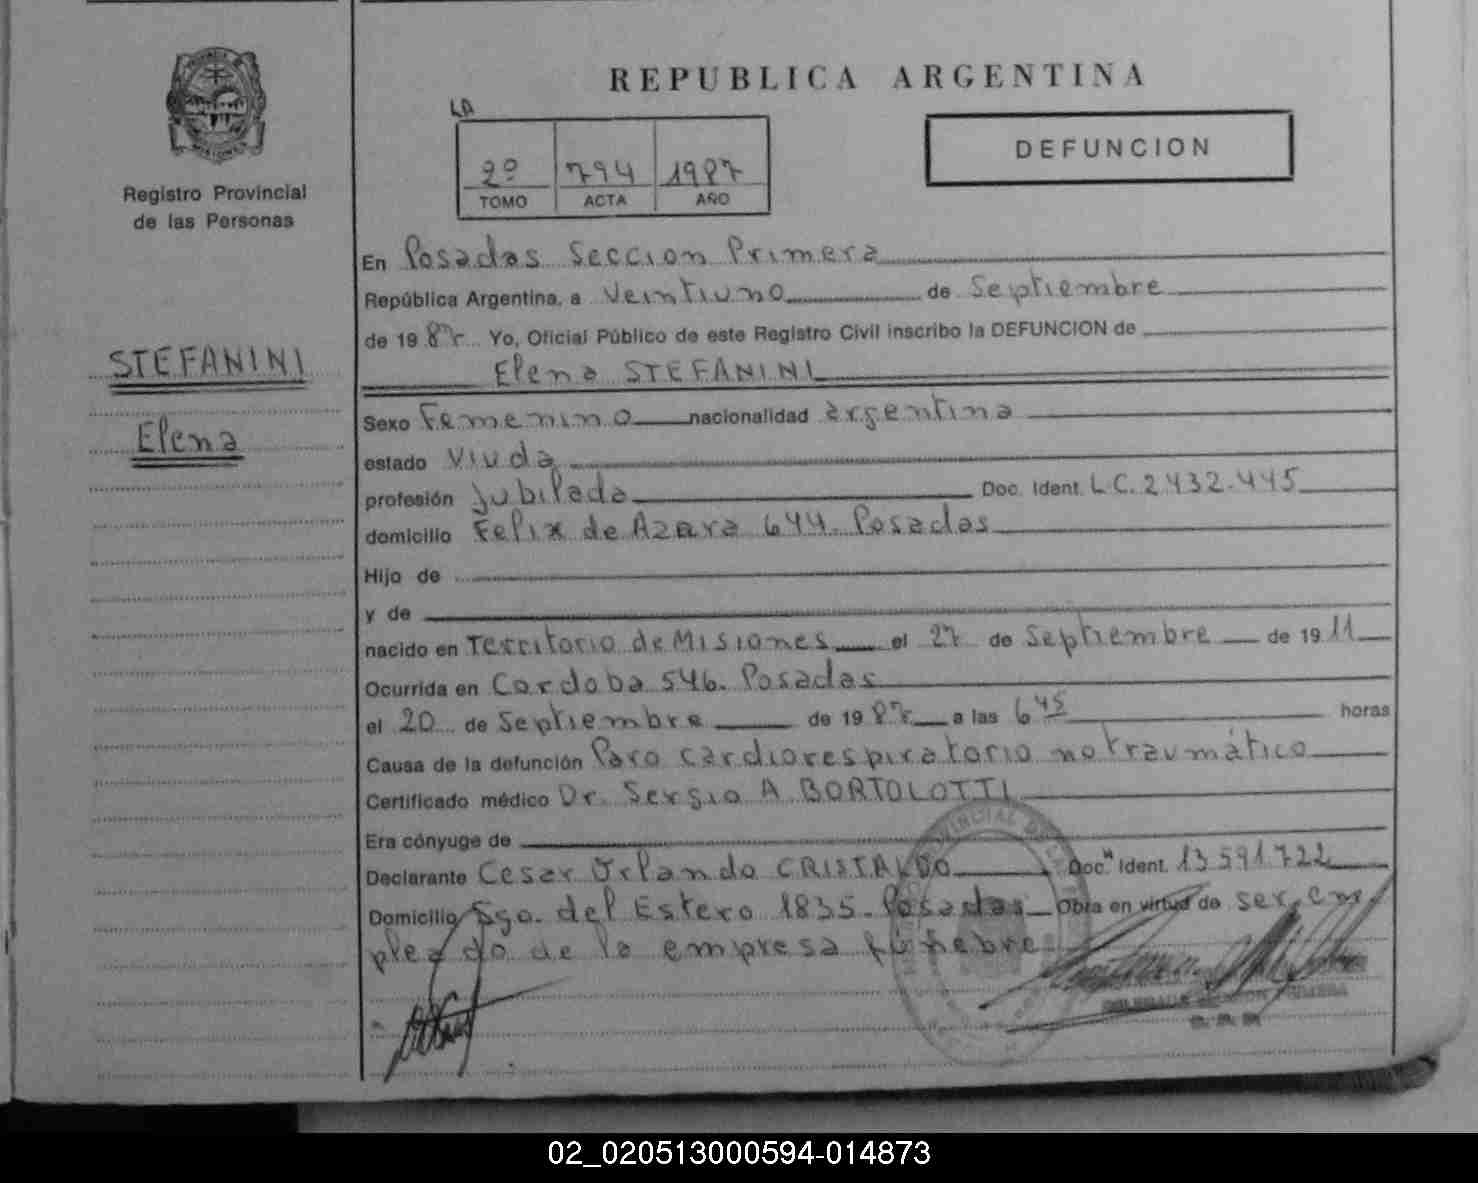 REPUBLICA ARGENTINA
LA
2º 794 1987
TOMO ACTA AÑO
DEFUNCION
Registro Provincial
de las Personas
STEFANINI
Elena
En Posadas Seccion Primera
República Argentina, a Veintiuno de Septiembre
de 1987 Yo, Oficial Público de este Registro Civil inscribo la DEFUNCION de
Elena STEFANINI
Sexo Femenino nacionalidad argentina
estado Viuda
profesión Jubilada Doc. Ident. L.C. 2.432.445
domicilio Felix de Azara 644. Posadas
Hijo de
y de
nacido en Territorio de Misiones el 27 de Septiembre de 1911
Ocurrida en Cordoba 546. Posadas
el 20 de Septiembre de 1987 a las 6 45 horas
Causa de la defunción Paro cardiorespiratorio no traumático
Certificado médico Dr. Sergio A. BORTOLOTTI
Era cónyuge de
Declarante Cesar Orlando CRISTALDO Doc. Ident. 13.591.722
Domicilio Sgo. del Estero 1835. Posadas Obra en virtud de ser em
pleado de la empresa fúnebre
02_020513000594-014873